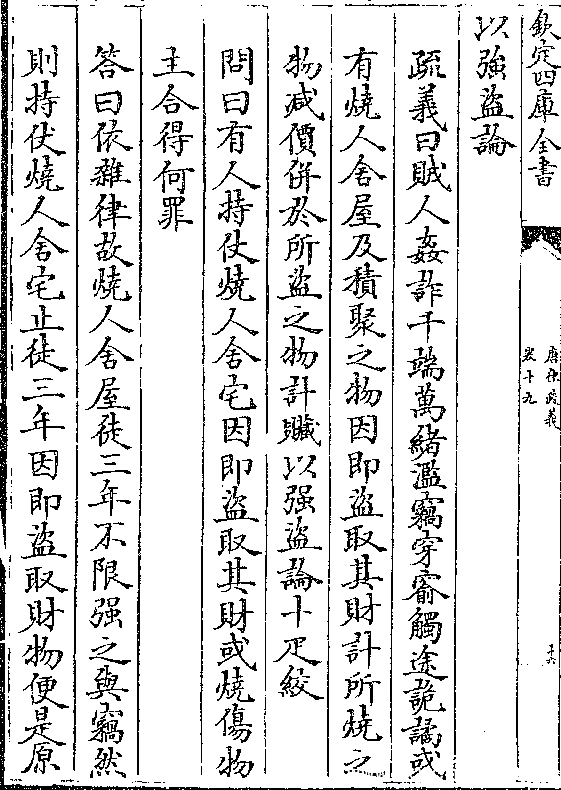 欽定四庫全書
唐律疏義
卷十九
十六
以強盜論
疏義曰賊人姦詐千端萬緒濫竊穿窬觸途詭譎或
有燒人舍屋及積聚之物因即盜取其財計所燒之
物減價併於所盜之物計贓以强盜論十疋絞
問曰有人持仗燒人舍宅因即盜取其財或燒傷物
主合得何罪
答曰依雜律故燒人舍屋徒三年不限强之與竊然
則持仗燒人舍宅止徒三年因即盜取財物便是原